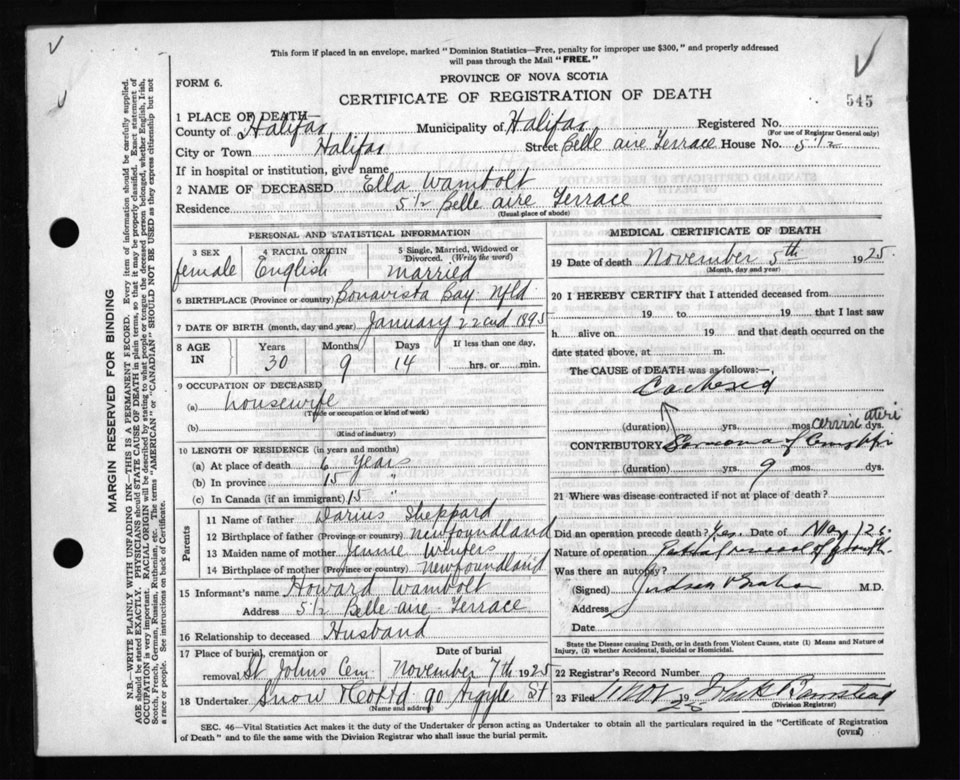 This form if placed in an envelope, marked "Dominion Statistics—Free, penalty for improper use $300," and properly addressed
will pass through the Mail "FREE."
FORM 6.
PROVINCE OF NOVA SCOTIA
CERTIFICATE OF REGISTRATION OF DEATH
545
1 PLACE OF DEATH
County of Halifax Municipality of Halifax Registered No.
(For use of Registrar General only)
City or Town Halifax Street Belle aire Terrace House No. 5 1/2
If in hospital or institution, give name
2 NAME OF DECEASED Ella Wambolt
Residence 5 1/2 Belle aire Terrace
(Usual place of abode)
PERSONAL AND STATISTICAL INFORMATION
3 SEX female
4 RACIAL ORIGIN English
5 Single, Married, Widowed or Divorced. (Write the word) married
6 BIRTHPLACE (Province or country) Bonavista Bay Nfld
7 DATE OF BIRTH (month, day and year) January 22nd 1895
8 AGE IN Years 30 Months 9 Days 14 If less than one day, hrs. or min.
9 OCCUPATION OF DECEASED
(a) housewife
(Trade or occupation or kind of work)
(b)
(Kind of industry)
10 LENGTH OF RESIDENCE (in years and months)
(a) At place of death 6 Years
(b) In province 15 "
(c) In Canada (if an immigrant) 15 "
Parents
11 Name of father Darius Sheppard
12 Birthplace of father (Province or country) Newfoundland
13 Maiden name of mother Jennie Winters
14 Birthplace of mother (Province or country) Newfoundland
15 Informant's name Howard Wambolt
Address 5 1/2 Belle aire Terrace
16 Relationship to deceased Husband
17 Place of burial, cremation or removal St Johns Cem Date of burial November 7th 1925
18 Undertaker Snow & Co Ltd 90 Argyle St
(Name and address)
MEDICAL CERTIFICATE OF DEATH
19 Date of death November 5th 1925
(Month, day and year)
20 I HEREBY CERTIFY that I attended deceased from
19 to 19 that I last saw
h alive on 19 and that death occurred on
date stated above, at m.
The CAUSE of DEATH was as follows:—
(duration) yrs. mos. dys.
CONTRIBUTORY
(duration) yrs. 9 mos. dys.
21 Where was disease contracted if not at place of death?
Did an operation precede death? Yes. Date of May 1 25
Nature of operation Partial removal of growth.
Was there an autopsy?
(Signed) Judson V Graham M.D.
Address
Date
State the Disease causing Death, or in death from Violent Causes, state (1) Means and Nature of
Injury, (2) whether Accidental, Suicidal or Homicidal.
22 Registrar's Record Number
23 Filed 19
(Division Registrar)
SEC. 46—Vital Statistics Act makes it the duty of the Undertaker or person acting as Undertaker to obtain all the particulars required in the "Certificate of Registration
of Death" and to file the same with the Division Registrar who shall issue the burial permit.
(OVER)
MARGIN RESERVED FOR BINDING
N.B.—WRITE PLAINLY WITH UNFADING INK—THIS IS A PERMANENT RECORD. Every item of information should be carefully supplied.
AGE should be stated EXACTLY. PHYSICIANS should STATE CAUSE OF DEATH in plain terms, so that it may be properly classified. Exact statement of
OCCUPATION is very important. RACIAL ORIGIN will be described by stating to what people or tongue the deceased person belonged, whether English, Irish,
Scotch, French, German, Russian, Ruthenian, etc. The terms "AMERICAN" or "CANADIAN" SHOULD NOT BE USED as they express citizenship but not
a race or people. See instructions on back of Certificate.